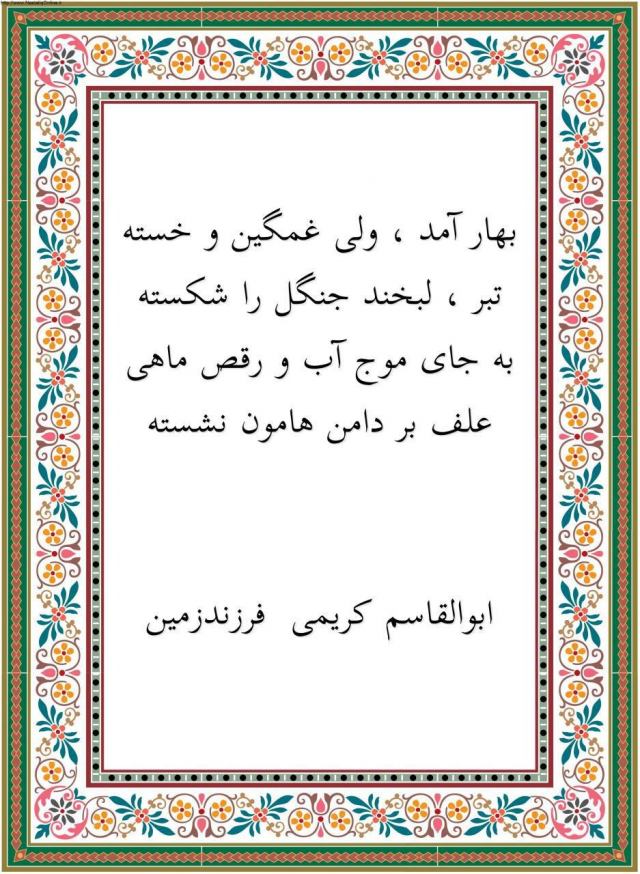 http://www.NastaliqOnline.ir
بهار آمد ، ولی غمگین و خسته
تبر ، لبخند جنگل را شکسته
به جای موج آب و رقص ماهی
علف بر دامن هامون نشسته
ابوالقاسم کریمی فرزندزمین